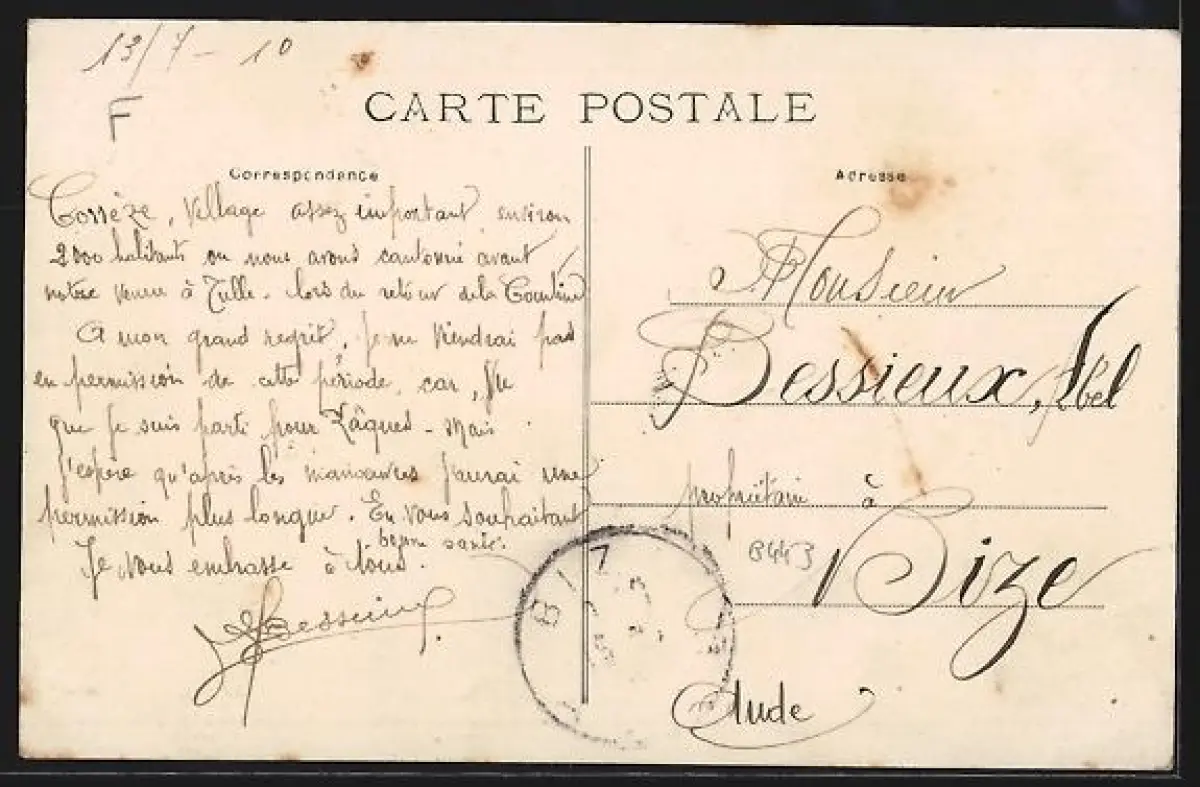 13/7 - 10
F
CARTE POSTALE
Correspondance
Adresse
Corrèze, village assez important environ
2000 habitants ou nous avons cantonné avant
notre venue à Tulle. lors du retour de la Courtine
A mon grand regrit, je ne viendrai pas
en permission de cette période, car, vu
que je suis parti pour Pâques - mais
j'espère qu'après les manœuvres j'aurai une
permission plus longue. En vous souhaitant
bonne santé.
Je vous embrasse à tous.
Bessieux
Monsieur
Bessieux, Abel
propriétaire à
B443
Bize
Aude
BIZ